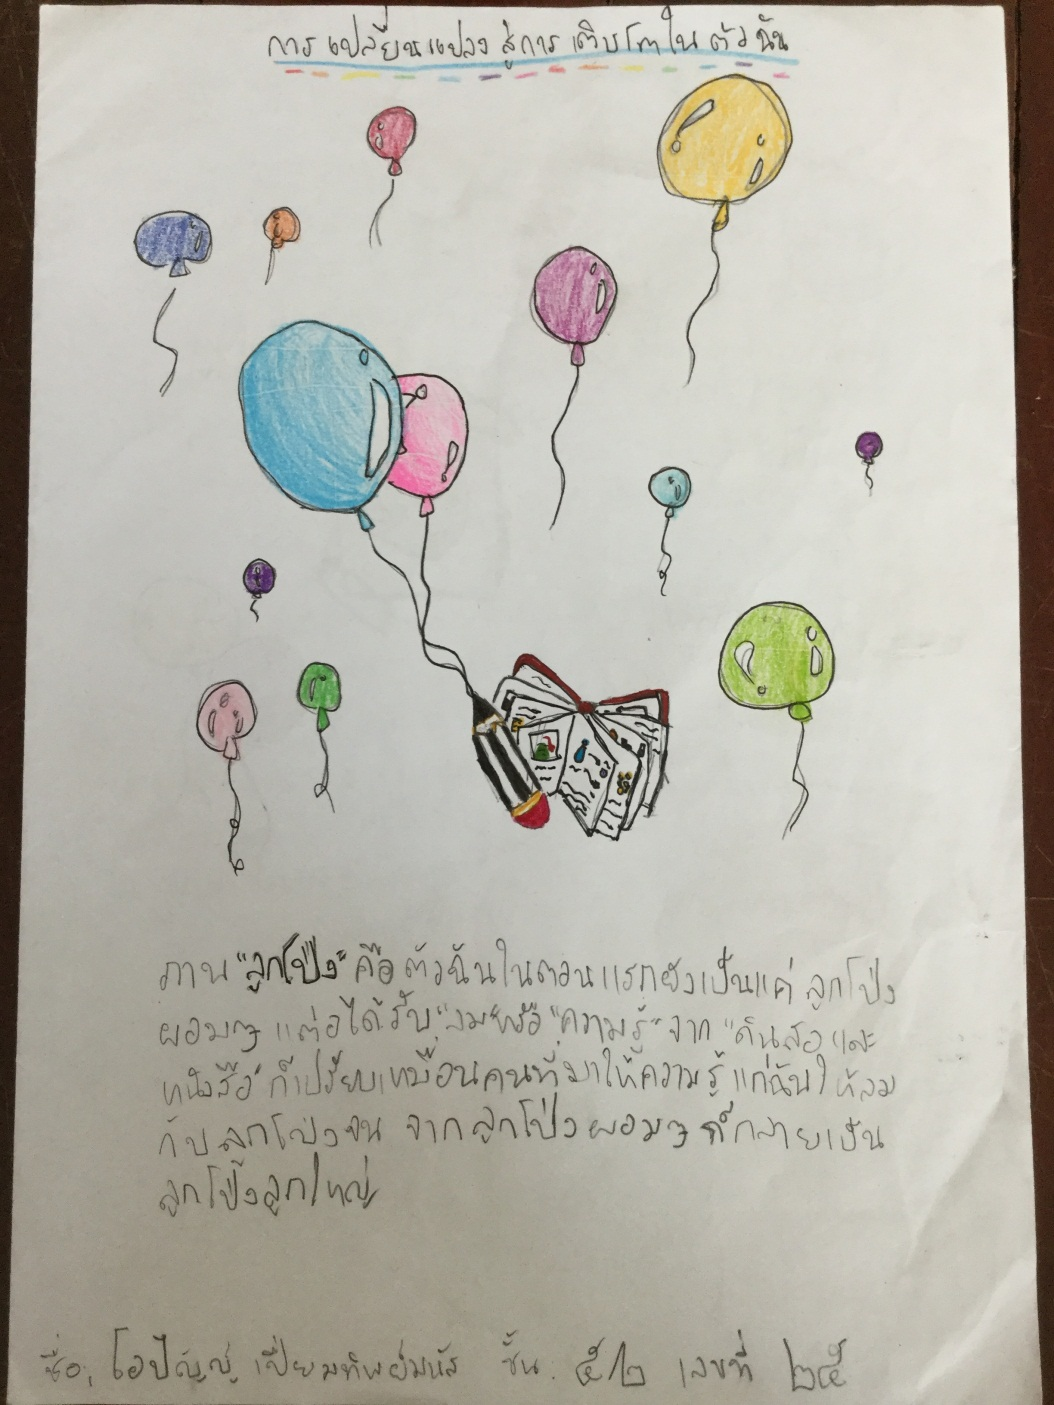 การเปลี่ยนแปลง สู่การ เติบโตใน ตัวฉัน
ภาพ "ลูกโป่ง" คือ ตัวฉันในตอนแรกยังเป็นแค่ ลูกโป่ง
ผอมๆ แต่พอได้รับ "ลม" หรือ "ความรู้" จาก "ดินสอ และ
หนังสือ" ก็เปรียบเหมือนคนที่มาให้ความรู้ แก่ฉัน ให้ลม
กับ ลูกโป่งจน จากลูกโป่ง ผอมๆ ก็กลายเป็น
ลูกโป่งลูกใหญ่
ชื่อ; เปี่ยมทิพย์มนัส ชั้น. ๕/๒ เลขที่ ๒๕